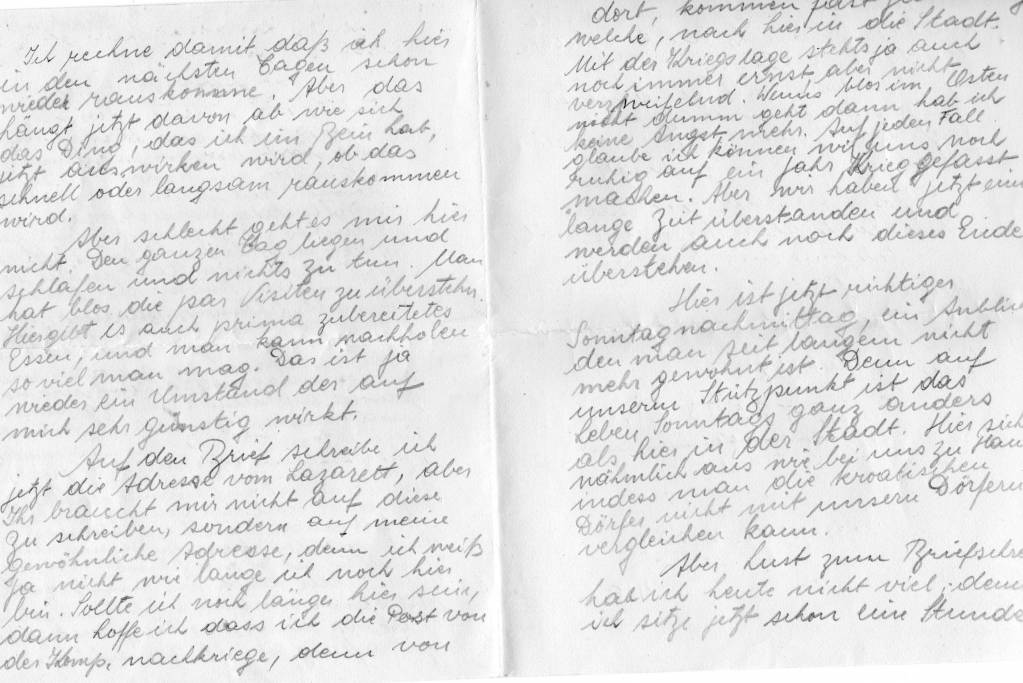 Ich rechne damit daß ich hier
in den nächsten Tagen schon
wieder rauskomme. Aber das
hängt jetzt davon ab wie sich
das Ding, das ich im Bein hab,
jetzt auswirken wird, ob das
schnell oder langsam rauskommen
wird.
Aber schlecht geht es mir hier
nicht. Den ganzen Tag liegen und
schlafen und nichts zu tun. Man
hat blos die paar Visiten zu überstehn.
Hier gibt es auch prima zubereitetes
Essen, und man kann nachholen
soviel man mag. Das ist ja
wieder ein Umstand der auf
mich sehr günstig wirkt.
Auf den Brief schreibe ich
jetzt die Adresse vom Lazarett, aber
Ihr braucht mir nicht auf diese
zu schreiben, sondern auf meine
gewöhnliche Adresse, denn ich weiß
ja nicht wie lange ich noch hier
bin. Sollte ich noch länger hier sein,
dann hoffe ich dass ich die Post von
der Komp. nachkriege, denn von
dort, kommen fast
welche, nach hier in die Stadt.
Mit der Kriegslage stehts ja auch
noch immer ernst, aber nicht
verzweifelnd. Wenns blos im Osten
nicht dumm geht dann hab ich
keine Angst mehr. Auf jeden Fall
glaube ich können wir uns noch
ruhig auf ein Jahr Krieg gefasst
machen. Aber wir haben jetzt eine
lange Zeit überstanden und
werden auch noch dieses Ende
überstehen.
Hier ist jetzt richtiger
Sonntagnachmittag, ein Anblick
den man seit langem nicht
mehr gewohnt ist. Denn auf
unserm Stützpunkt ist das
Leben Sonntags ganz anders
als hier in der Stadt. Hier sieht
nähmlich aus wie bei uns zu Haus
indess man die kroatischen
Dörfer nicht mit unsern Dörfern
vergleichen kann.
Aber Lust zum Briefschrei
hab ich heute nicht viel, denn
ich sitze jetzt schon eine Stunde